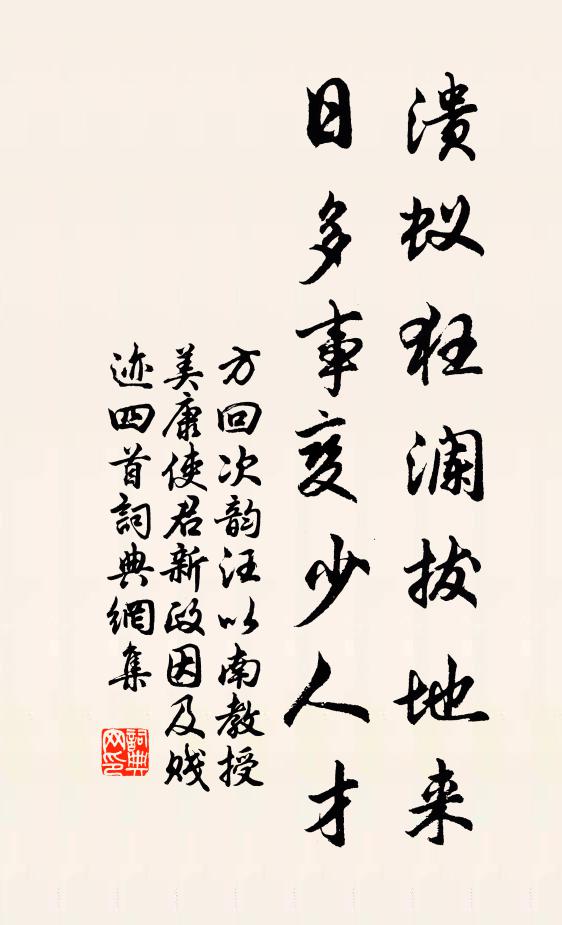 溃蚁狂澜拔地来
日多事变少人才
方回次韵汪以南教授
美康使君新政因及贱
迹四首詞典網集
詞典网印